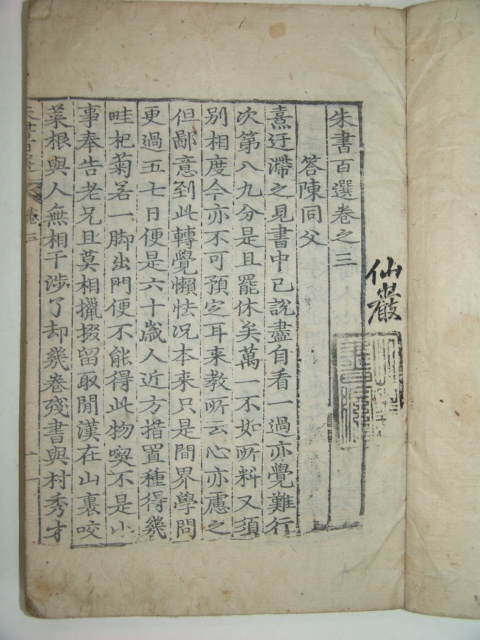 仙巖
朱書百選卷之三
答陳同父
熹迂滯之見書中已說盡自看一過亦覺難行
次第八九分是且罷休矣萬一不如所料又須
別相度今亦不可預定耳來教所云心亦慮之
但鄙意到此轉覺懶怯况本來只是間界學問
更過五七日便是六十歲人近方措置種得幾
畦杞菊若一脚出門便不能得此物喫不是小
事奉告老兄且莫相攛掇留取閒漢在山裏咬
菜根與人無相干涉了却幾卷殘書與村秀才